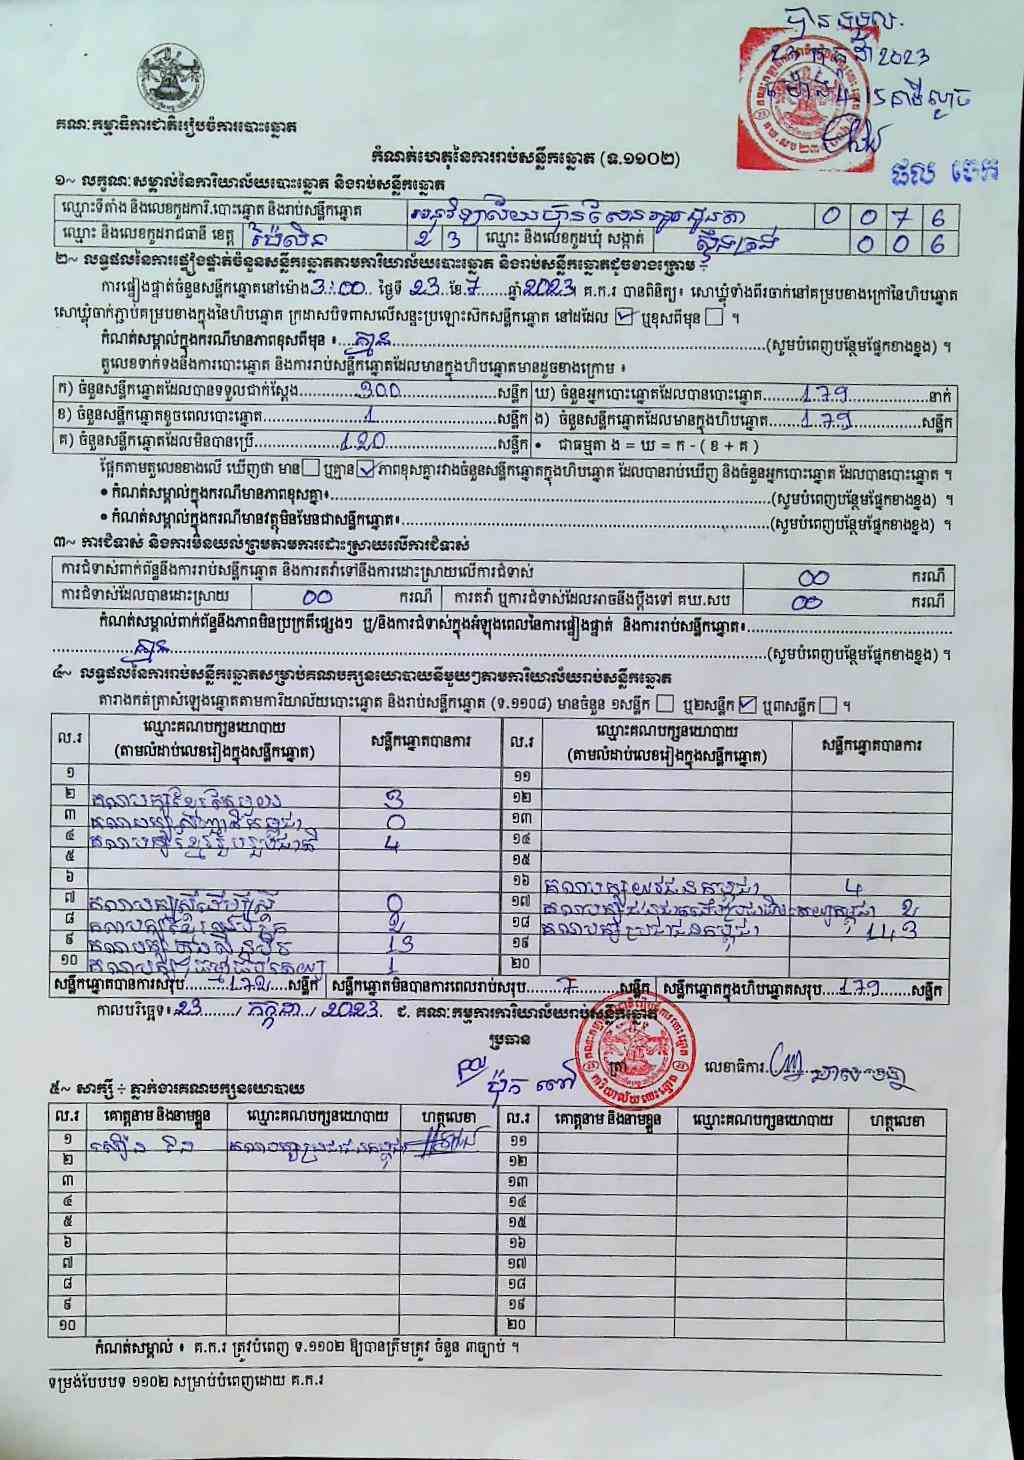 បានទទួល
23 កក្កដា 2023
ម៉ោង 4:15 នាទីល្ងាច
ផល
គណៈកម្មាធិការជាតិរៀបចំការបោះឆ្នោត
កំណត់ហេតុនៃការរាប់សន្លឹកឆ្នោត (ទ.១១០២)
១~ លក្ខណៈសម្គាល់នៃការិយាល័យបោះឆ្នោត និងរាប់សន្លឹកឆ្នោត
ឈ្មោះទីតាំង និងលេខកូដការិ.បោះឆ្នោត និងរាប់សន្លឹកឆ្នោត អនុវិទ្យាល័យ ហ៊ុន សែន 0 0 7 6
ឈ្មោះ និងលេខកូដរាជធានី ខេត្ត ប៉ៃលិន 2 3 ឈ្មោះ និងលេខកូដឃុំ សង្កាត់ ស្ទឹងត្រង់ 0 0 6
២~ លទ្ធផលនៃការផ្ទៀងផ្ទាត់ចំនួនសន្លឹកឆ្នោតតាមការិយាល័យបោះឆ្នោត និងរាប់សន្លឹកឆ្នោតដូចខាងក្រោម ÷
ការផ្ទៀងផ្ទាត់ចំនួនសន្លឹកឆ្នោតនៅម៉ោង 3:00 ថ្ងៃទី 23 ខែ 7 ឆ្នាំ 2023 គ.ក.រ បានពិនិត្យ៖ សោឃ្លុំទាំងពីរចាក់នៅគម្របខាងក្រៅនៃហិបឆ្នោត
សោឃ្លុំចាក់ភ្ជាប់គម្របខាងក្នុងនៃហិបឆ្នោត ក្រដាសបិទពាសលើសន្ទះប្រឡោះសិកសន្លឹកឆ្នោត នៅដដែល ☑ ឬខុសពីមុន ☐ ។
កំណត់សម្គាល់ក្នុងករណីមានភាពខុសពីមុន ៖ គ្មាន (សូមបំពេញបន្ថែមផ្នែកខាងខ្នង) ។
តួលេខទាក់ទងនឹងការបោះឆ្នោត និងការរាប់សន្លឹកឆ្នោតដែលមានក្នុងហិបឆ្នោតមានដូចខាងក្រោម ៖
ក) ចំនួនសន្លឹកឆ្នោតដែលបានទទួលជាក់ស្តែង 300 សន្លឹក ឃ) ចំនួនអ្នកបោះឆ្នោតដែលបានបោះឆ្នោត 179 នាក់
ខ) ចំនួនសន្លឹកឆ្នោតខូចពេលបោះឆ្នោត 1 សន្លឹក ង) ចំនួនសន្លឹកឆ្នោតដែលមានក្នុងហិបឆ្នោត 179 សន្លឹក
គ) ចំនួនសន្លឹកឆ្នោតដែលមិនបានប្រើ 120 សន្លឹក • ជាធម្មតា ង = ឃ = ក - ( ខ + គ )
ផ្អែកតាមតួលេខខាងលើ ឃើញថា មាន ☐ ឬគ្មាន ☑ ភាពខុសគ្នារវាងចំនួនសន្លឹកឆ្នោតក្នុងហិបឆ្នោត ដែលបានរាប់ឃើញ និងចំនួនអ្នកបោះឆ្នោត ដែលបានបោះឆ្នោត ។
• កំណត់សម្គាល់ក្នុងករណីមានភាពខុសគ្នា៖ (សូមបំពេញបន្ថែមផ្នែកខាងខ្នង) ។
• កំណត់សម្គាល់ក្នុងករណីមានវត្ថុមិនមែនជាសន្លឹកឆ្នោត៖ (សូមបំពេញបន្ថែមផ្នែកខាងខ្នង) ។
៣~ ការជំទាស់ និងការមិនយល់ព្រមតាមការដោះស្រាយលើការជំទាស់
ការជំទាស់ពាក់ព័ន្ធនឹងការរាប់សន្លឹកឆ្នោត និងការតវ៉ាទៅនឹងការដោះស្រាយលើការជំទាស់ 00 ករណី
ការជំទាស់ដែលបានដោះស្រាយ 00 ករណី ការតវ៉ា ឬការជំទាស់ដែលអាចនឹងប្តឹងទៅ គឃ.សប 00 ករណី
កំណត់សម្គាល់ពាក់ព័ន្ធនឹងភាពមិនប្រក្រតីផ្សេងៗ ឬ/និងការជំទាស់ក្នុងអំឡុងពេលនៃការផ្ទៀងផ្ទាត់ និងការរាប់សន្លឹកឆ្នោត៖
គ្មាន (សូមបំពេញបន្ថែមផ្នែកខាងខ្នង) ។
៤~ លទ្ធផលនៃការរាប់សន្លឹកឆ្នោតសម្រាប់គណបក្សនយោបាយនីមួយៗតាមការិយាល័យរាប់សន្លឹកឆ្នោត
តារាងកត់ត្រាសំឡេងឆ្នោតតាមការិយាល័យបោះឆ្នោត និងរាប់សន្លឹកឆ្នោត (ទ.១១០៨) មានចំនួន ១សន្លឹក ☐ ឬ២សន្លឹក ☑ ឬ៣សន្លឹក ☐ ។
ល.រ ឈ្មោះគណបក្សនយោបាយ (តាមលំដាប់លេខរៀងក្នុងសន្លឹកឆ្នោត) សន្លឹកឆ្នោតបានការ ល.រ ឈ្មោះគណបក្សនយោបាយ (តាមលំដាប់លេខរៀងក្នុងសន្លឹកឆ្នោត) សន្លឹកឆ្នោតបានការ
១ ១១
២ គណបក្សខ្មែរតែមួយ 3 ១២
៣ គណបក្ស កម្ពុជា 0 ១៣
៤ គណបក្សខ្មែររួបរួមជាតិ 4 ១៤
៥ ១៥
៦ ១៦ គណបក្សយុវជនកម្ពុជា 4
៧ គណបក្សស្ត្រីដើម្បីស្ត្រី 0 ១៧ គណបក្ស 2
៨ គណបក្ស 2 ១៨ គណបក្សប្រជាជនកម្ពុជា 143
៩ គណបក្សហ្វ៊ុនស៊ិនប៉ិច 13 ១៩
១០ គណបក្សធម្មាធិបតេយ្យ 1 ២០
សន្លឹកឆ្នោតបានការសរុប 172 សន្លឹក សន្លឹកឆ្នោតមិនបានការពេលរាប់សរុប 7 សន្លឹក សន្លឹកឆ្នោតក្នុងហិបឆ្នោតសរុប 179 សន្លឹក
កាលបរិច្ឆេទ៖ 23 / កក្កដា / 2023 ជ. គណៈកម្មការការិយាល័យរាប់សន្លឹកឆ្នោត
ប្រធាន
ត្រា លេខាធិការ
ប៉ុក ពៅ
៥~ សាក្សី ÷ ភ្នាក់ងារគណបក្សនយោបាយ
ល.រ គោត្តនាម និងនាមខ្លួន ឈ្មោះគណបក្សនយោបាយ ហត្ថលេខា ល.រ គោត្តនាម និងនាមខ្លួន ឈ្មោះគណបក្សនយោបាយ ហត្ថលេខា
១ គណបក្សប្រជាជនកម្ពុជា ១១
២ ១២
៣ ១៣
៤ ១៤
៥ ១៥
៦ ១៦
៧ ១៧
៨ ១៨
៩ ១៩
១០ ២០
កំណត់សម្គាល់ ៖ គ.ក.រ ត្រូវបំពេញ ទ.១១០២ ឱ្យបានត្រឹមត្រូវ ចំនួន ៣ច្បាប់ ។
ទម្រង់បែបបទ ១១០២ សម្រាប់បំពេញដោយ គ.ក.រ